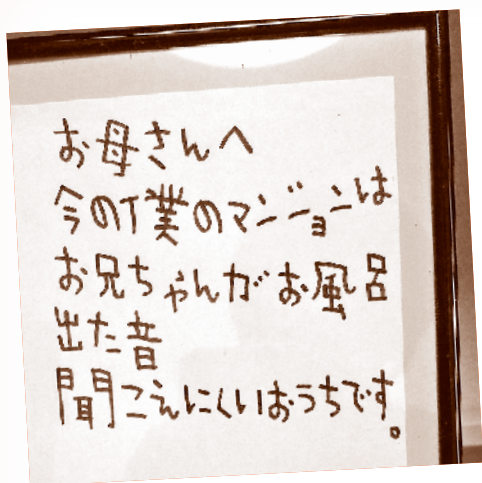 お母さんへ
今の僕のマンジョンは
お兄ちゃんがお風呂
出た音
聞こえにくいおうちです。